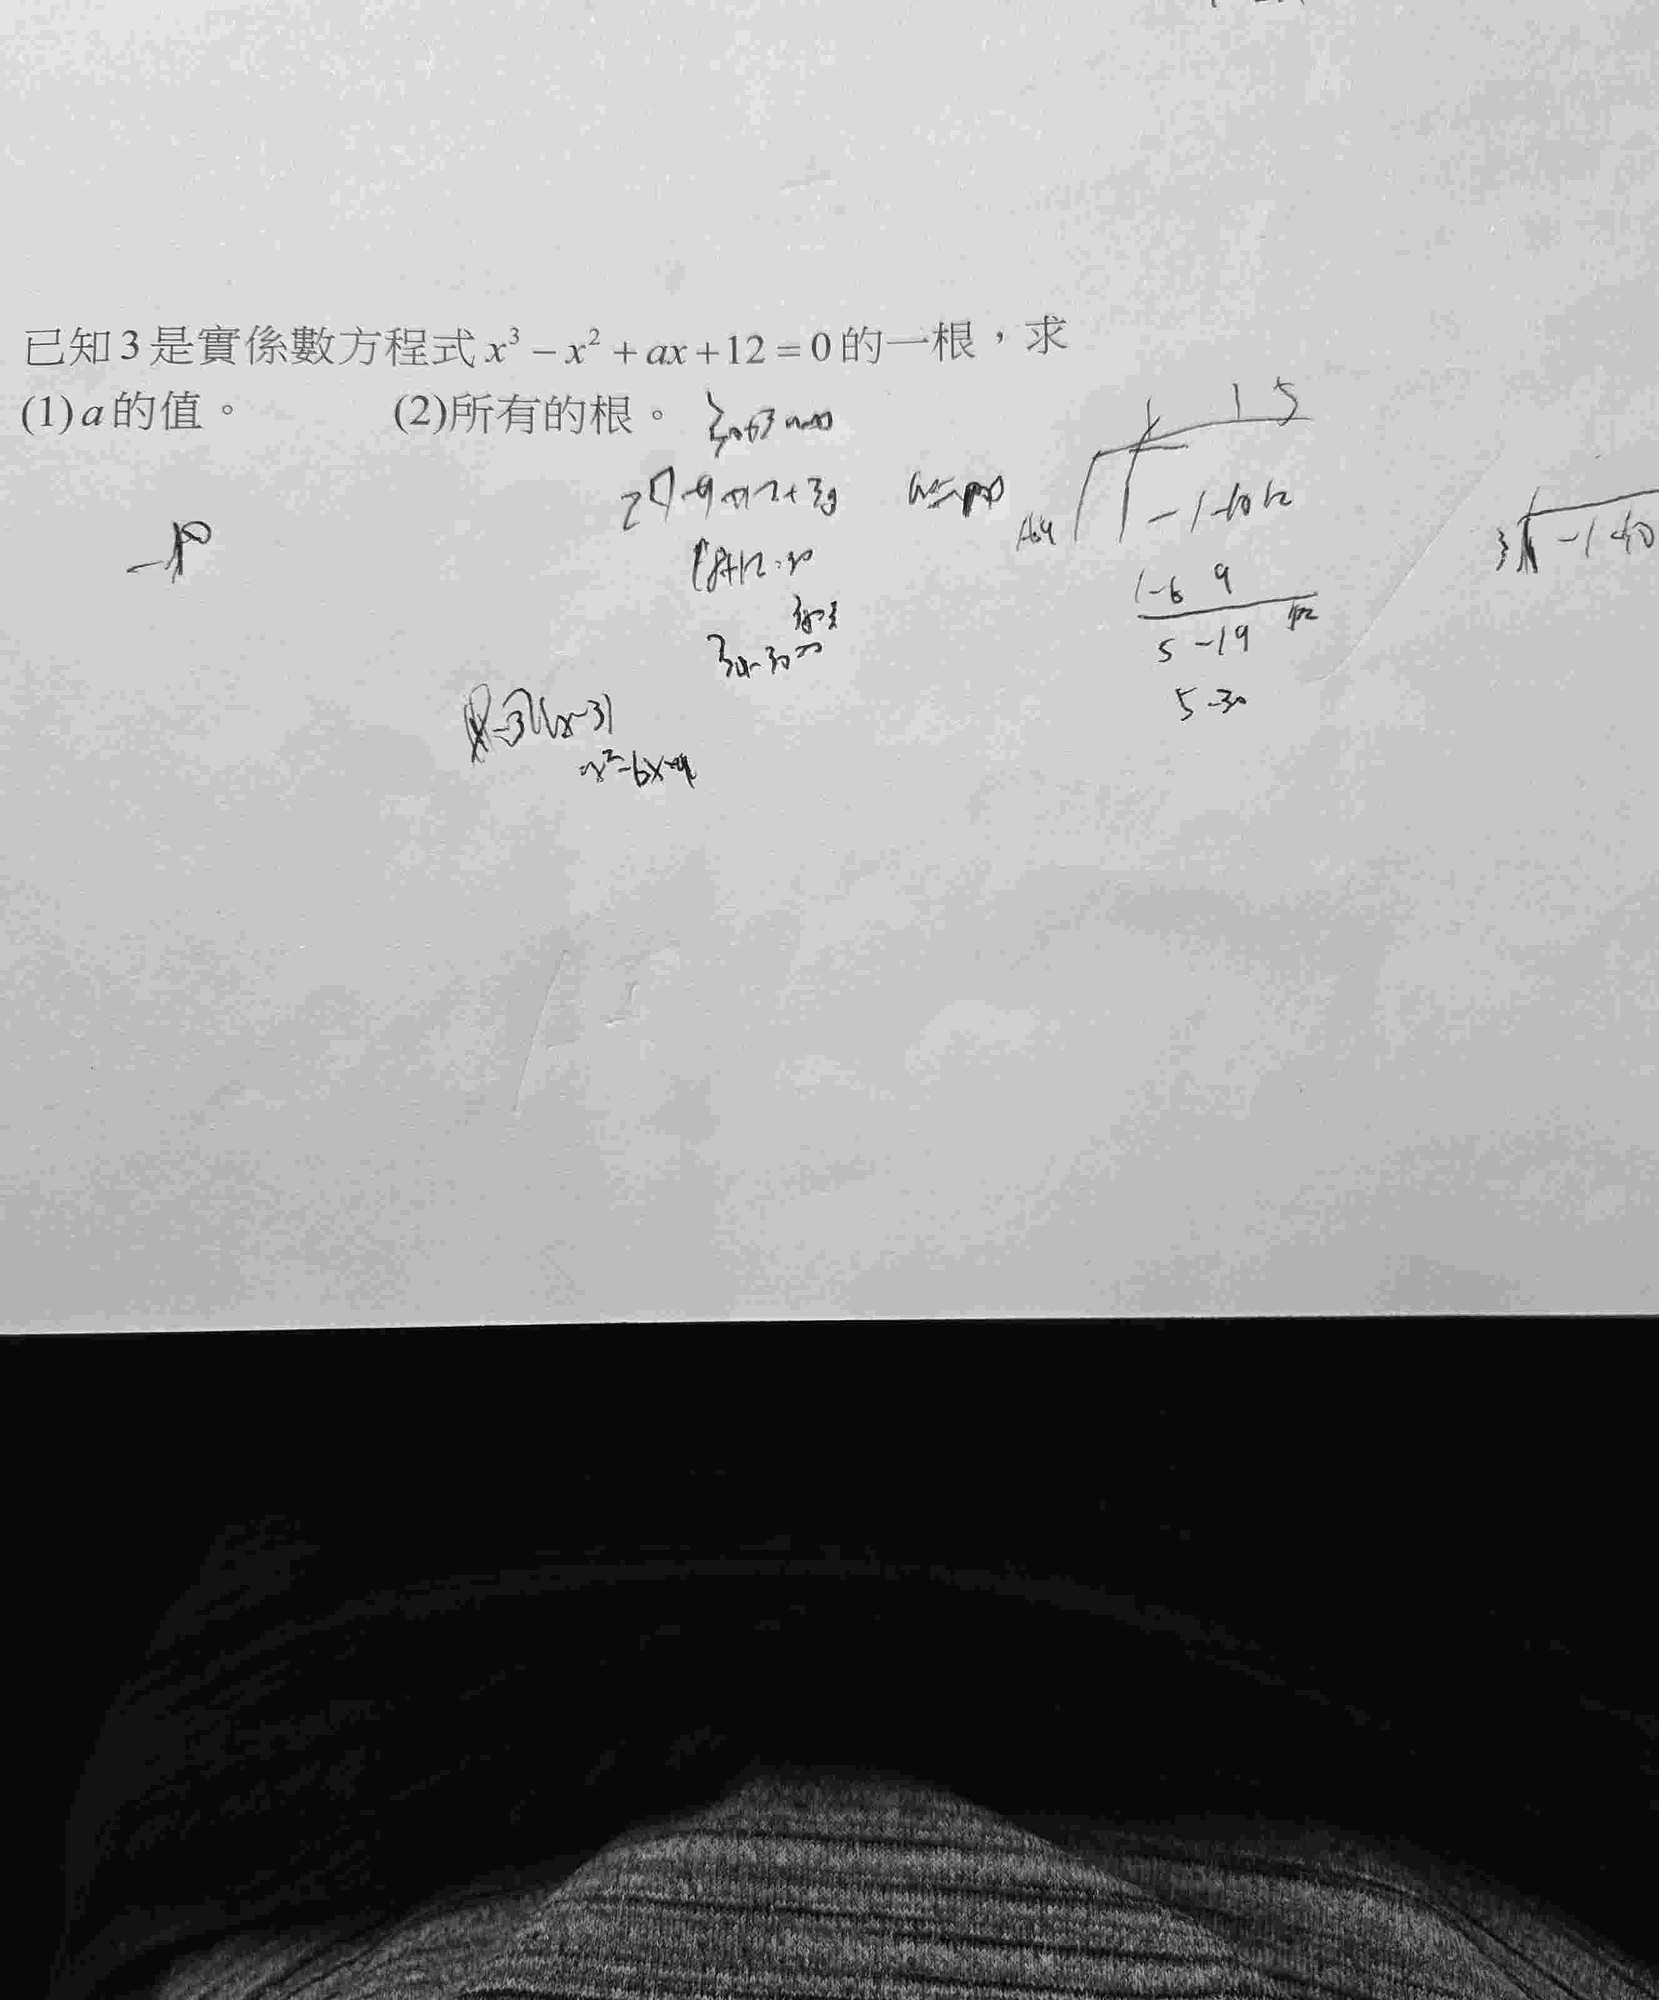 已知3是實係數方程式 x³ − x² + ax + 12 = 0 的一根，求
(1) a 的值。 (2)所有的根。
1 5
27-9+12+3a
-1-10 12
-10
3 -1-10
18+12=30
1-6 9
5 -19 12
3a-30=0
5-30
(x-3)(x-3)
x²-6x+9